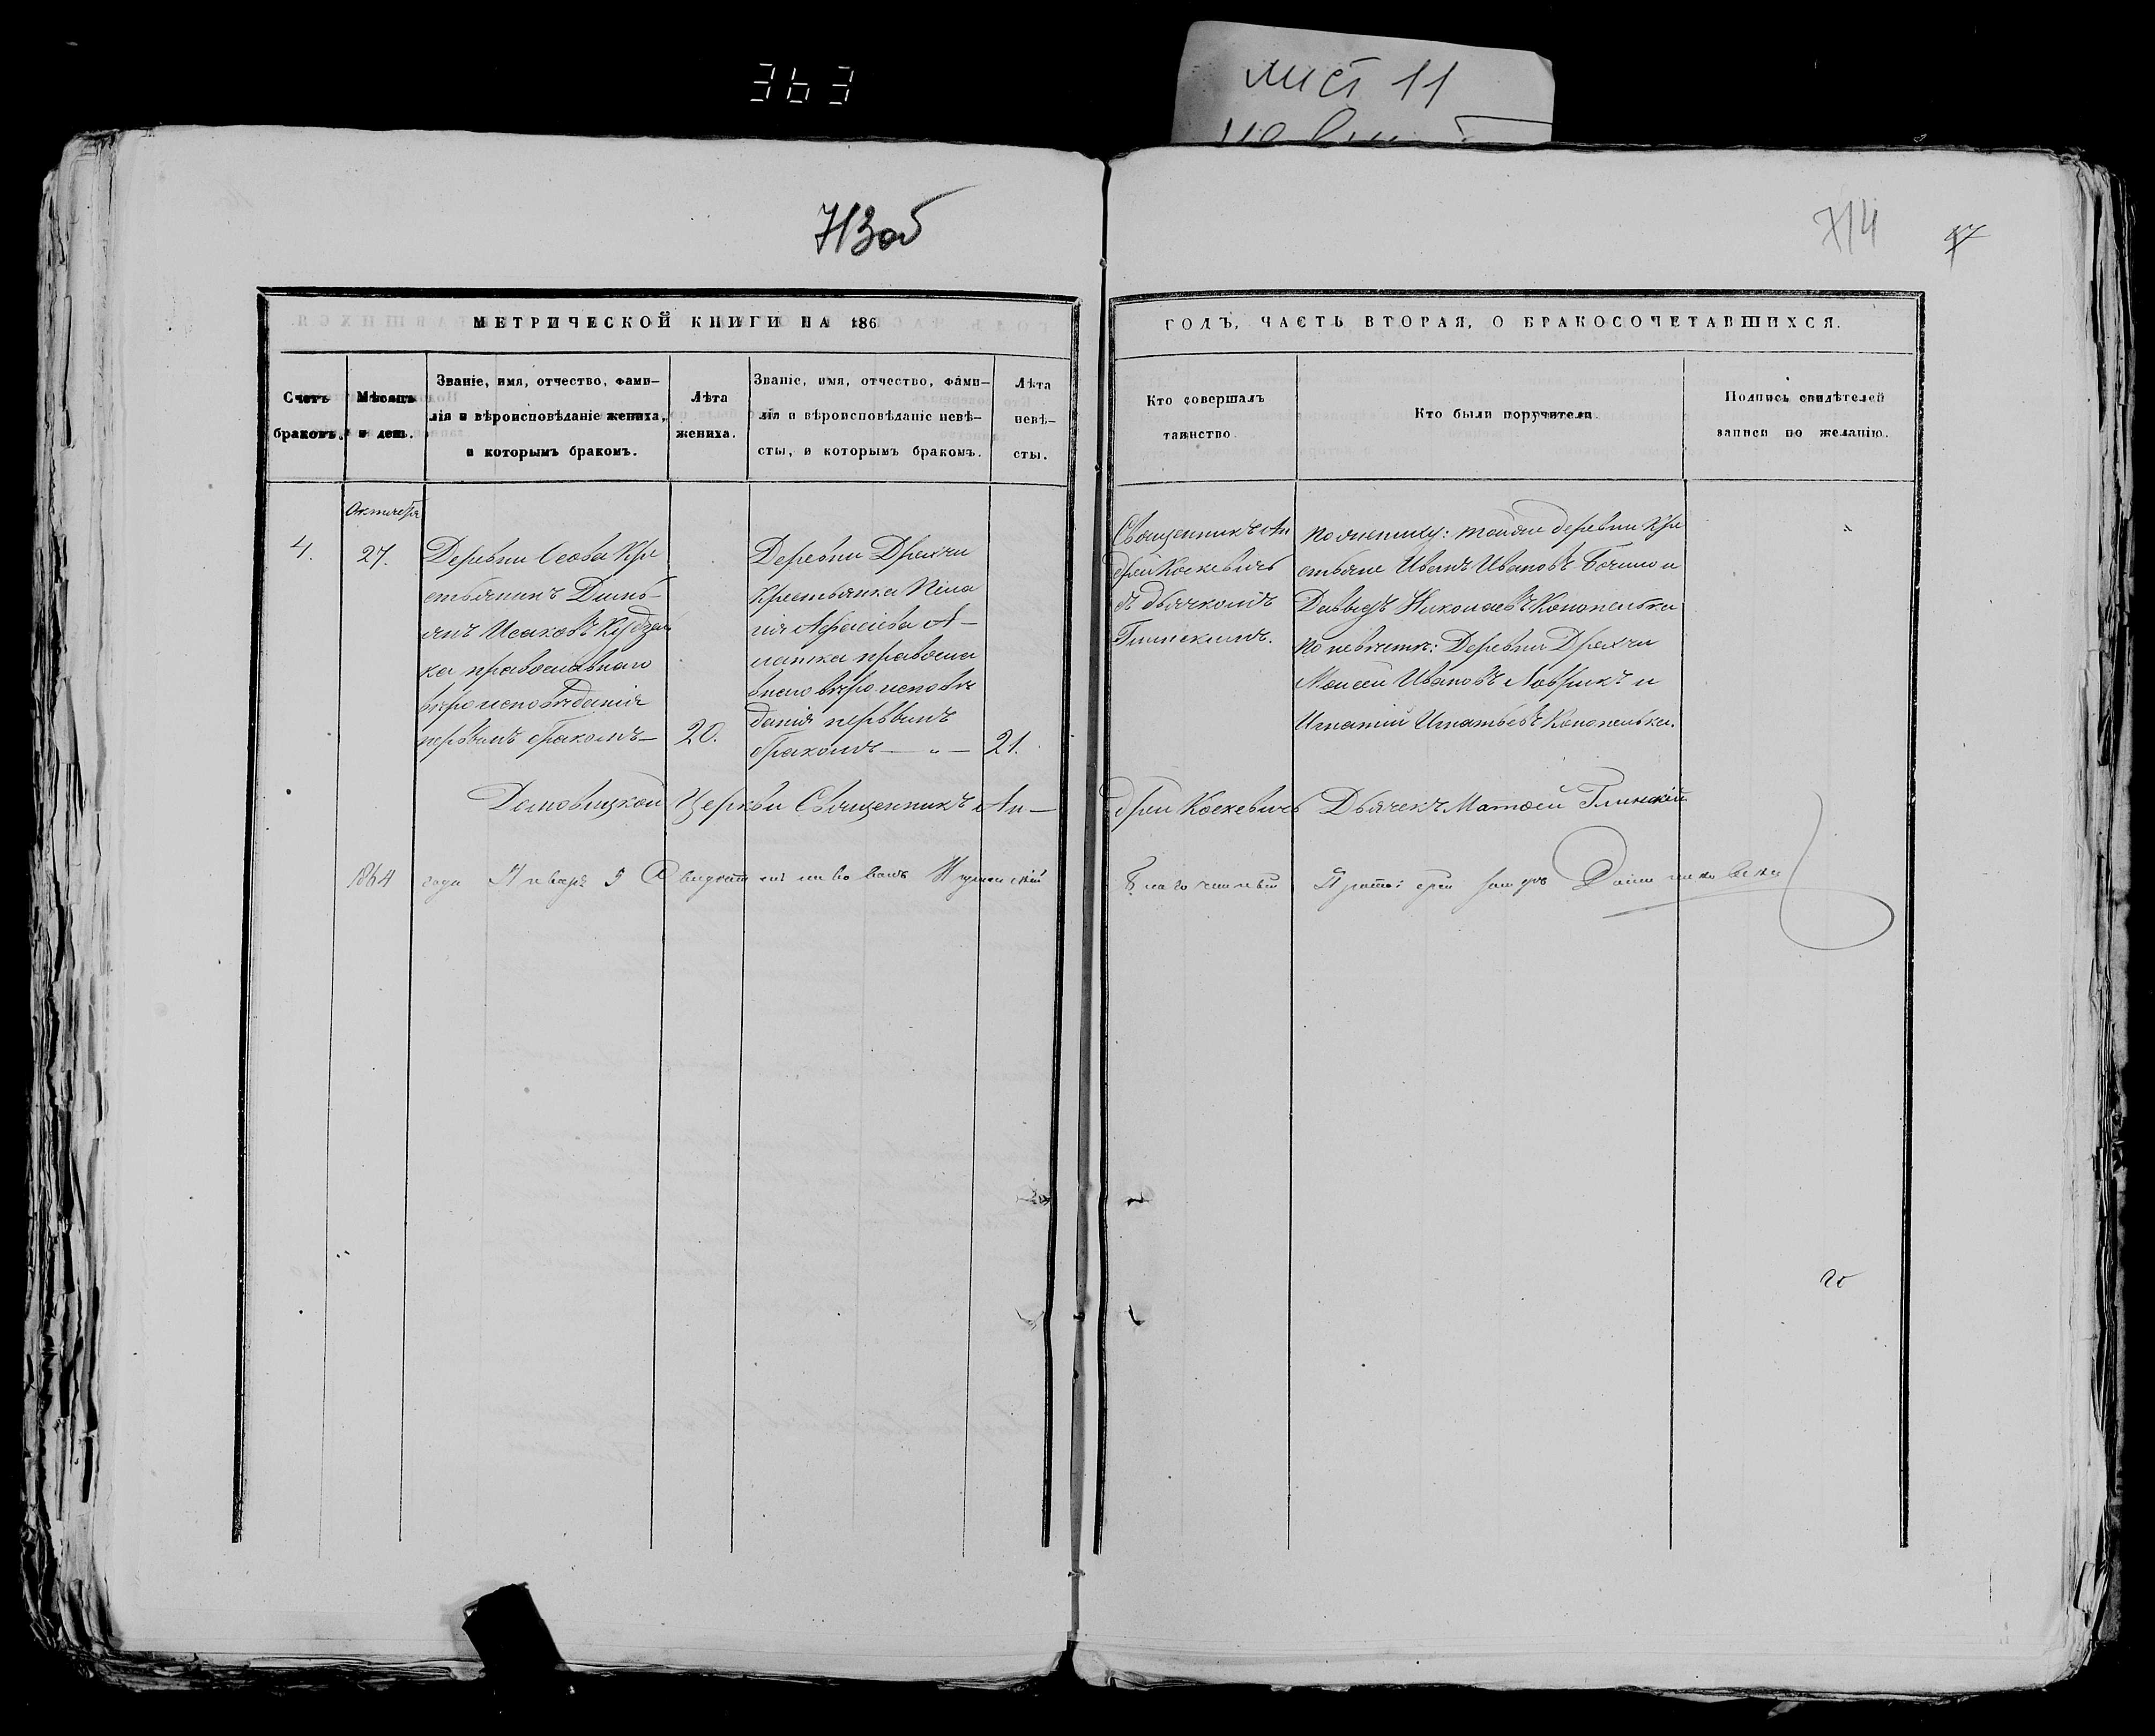 363
лист 11
713об
714
МЕТРИЧЕСКОЙ КНИГИ НА 186
ГОДЪ, ЧАСТЬ ВТОРАЯ, О БРАКОСОЧЕТАВШИХСЯ.
Счетъ
браковъ.
Мѣсяцъ
и день.
Званіе, имя, отчество, фами-
лія и вѣроисповѣданіе жениха,
и которымъ бракомъ.
Лѣта
жениха.
Званіе, имя, отчество, фами-
лія и вѣроисповѣданіе невѣ-
сты, и которымъ бракомъ.
Лѣта
невѣ-
сты.
Кто совершалъ
таинство.
Кто были поручители.
Подпись свидѣтелей
записи по желанію.
4.
Октября
27.
Деревни Осова Кре
стьянинъ Дмиъ-
янъ Исаковъ Кудзел
ка православнаго
вѣроисповѣданія
первымъ бракомъ—
20.
Деревни Драчи
Крестьянка Пела
гія
православ
наго вѣроисповѣ
данія первымъ
бракомъ — „ —
21.
Священникъ Ан
дрей Коскевичъ
съ дьячкомъ
Глинскимъ.
По жениху: тойже деревни Кре
стьяне Иванъ Ивановъ и
Давыдъ Николаевъ Конопелька
по невѣстѣ: Деревни Драчи
Моисей Ивановъ Лаврикъ и
Игнатій Игнатьевъ Конопелька.
„
Церкви Священникъ Ан—
дрей Коскевичъ Дьячекъ Матѳей Глинскій
1864 года Января 5 Свидѣтельствовалъ Игуменскій
Благочинный Протоіерей